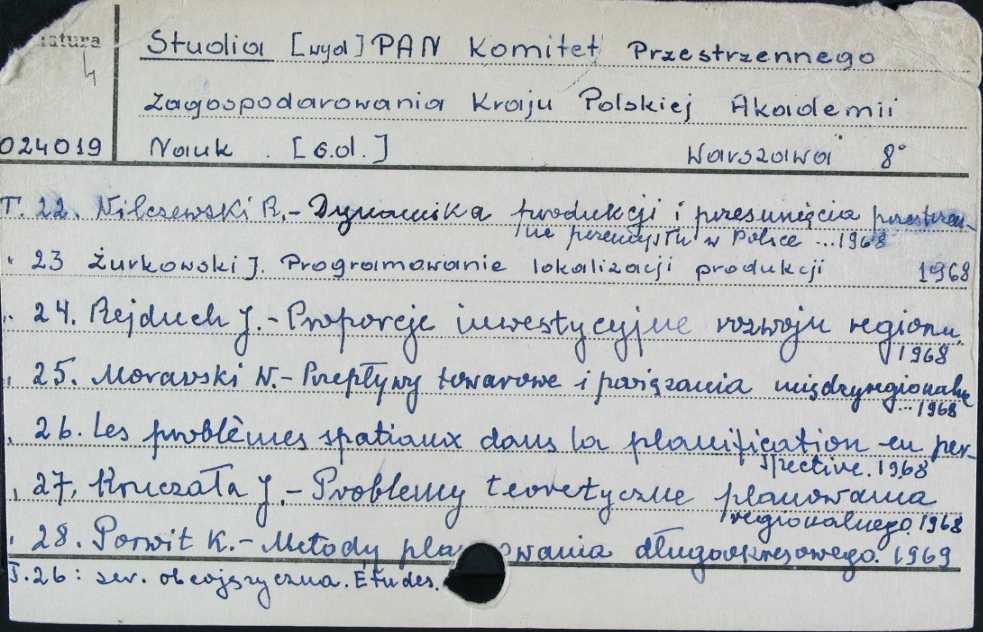 Studia [wyd] PAN Komitet Przestrzennego
4
Zagospodarowania Kraju Polskiej Akademii
024019 Nauk . [G.d.] Warszawa 8°
T. 22. Nilczewski R.- Dynamika produkcji i przesunięcia przestrzen-
ne przemysłu w Polsce ...1968
" 23 Żurkowski J. Programowanie lokalizacji produkcji 1968
" 24. Rejduch J.- Proporcje inwestycyjne rozwoju regionu.
1968
" 25. Morawski W.- Przepływy towarowe i powiązania międzyregionalne
...1968
" 26. Les problèmes spatiaux dans la planification en per-
spective. 1968
" 27. Kruczała J.- Problemy teoretyczne planowania
regionalnego. 1968
" 28. Porwit K.- Metody planowania długookresowego. 1969
T.26: ser. obcojęzyczna. Études.